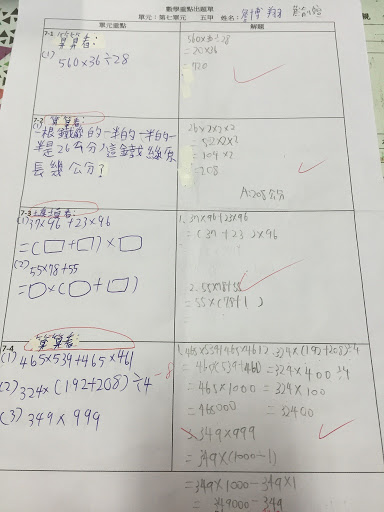 數學重點出題單
單元：第七單元 五甲 姓名：
單元重點
解題
7-1 算算看：
(1) 560×36÷28
560×36÷28
=20×36
=720
7-2 算算看：
(1) 一根鐵線的一半的一半的一
半是26公分，這鐵線原
長幾公分？
26×2×2×2
=52×2×2
=104×2
=208
A:208公分
7-3 填填看：
(1) 37×96+23×96
=(□+□)×□
(2) 55×78+55
=□×(□+□)
1. 37×96+23×96
=(37+23)×96
2. 55×78+55
=55×(78+1)
7-4 算算看：
(1) 465×539+465×461
(2) 324×(192+208)÷4
-8
(3) 349×999
1. 465×539+465×461
=465×(539+460)
=465×1000
=465000
2. 324×(192+208)÷4
=324×400÷4
=324×100
=32400
349×999
=349×(1000-1)
=349×1000-349×1
=349000-349